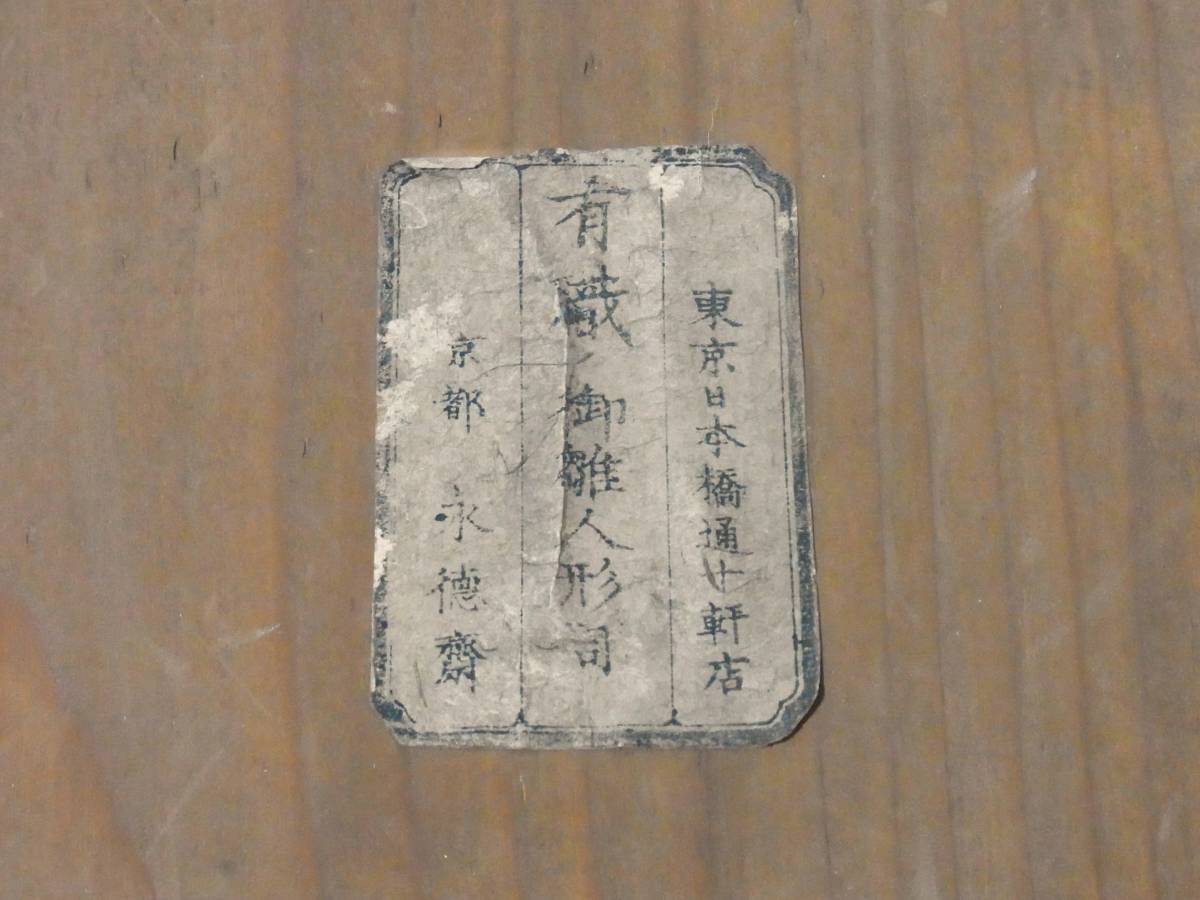 東京日本橋通十軒店
有職御雛人形司
京都 永德齋